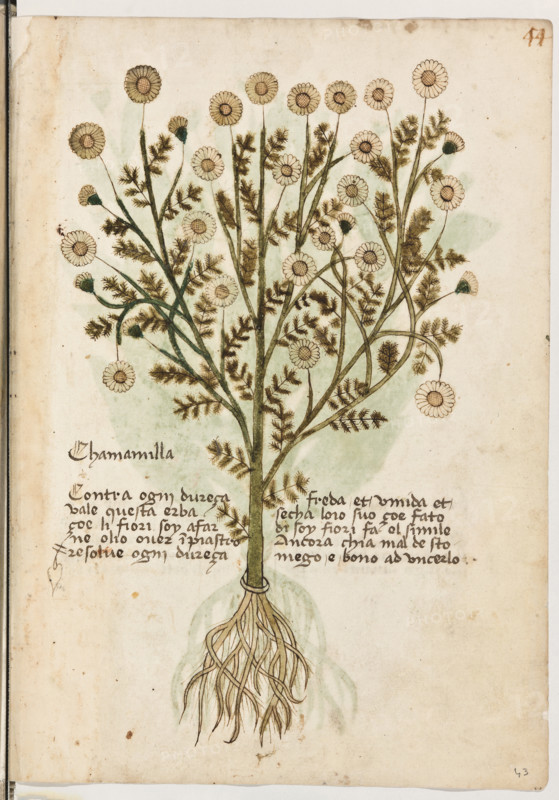 44
Chamamilla
Contra ogni dureça
vale questa erba
çoe li fiori soy afar
ne olio ouer īpiastro
resolue ogni dureça
freda et vmida et
secha loio suo çoe fato
di soy fiori fa ol simile
Ancora chia mal de sto
mego e bono ad vncerlo
43